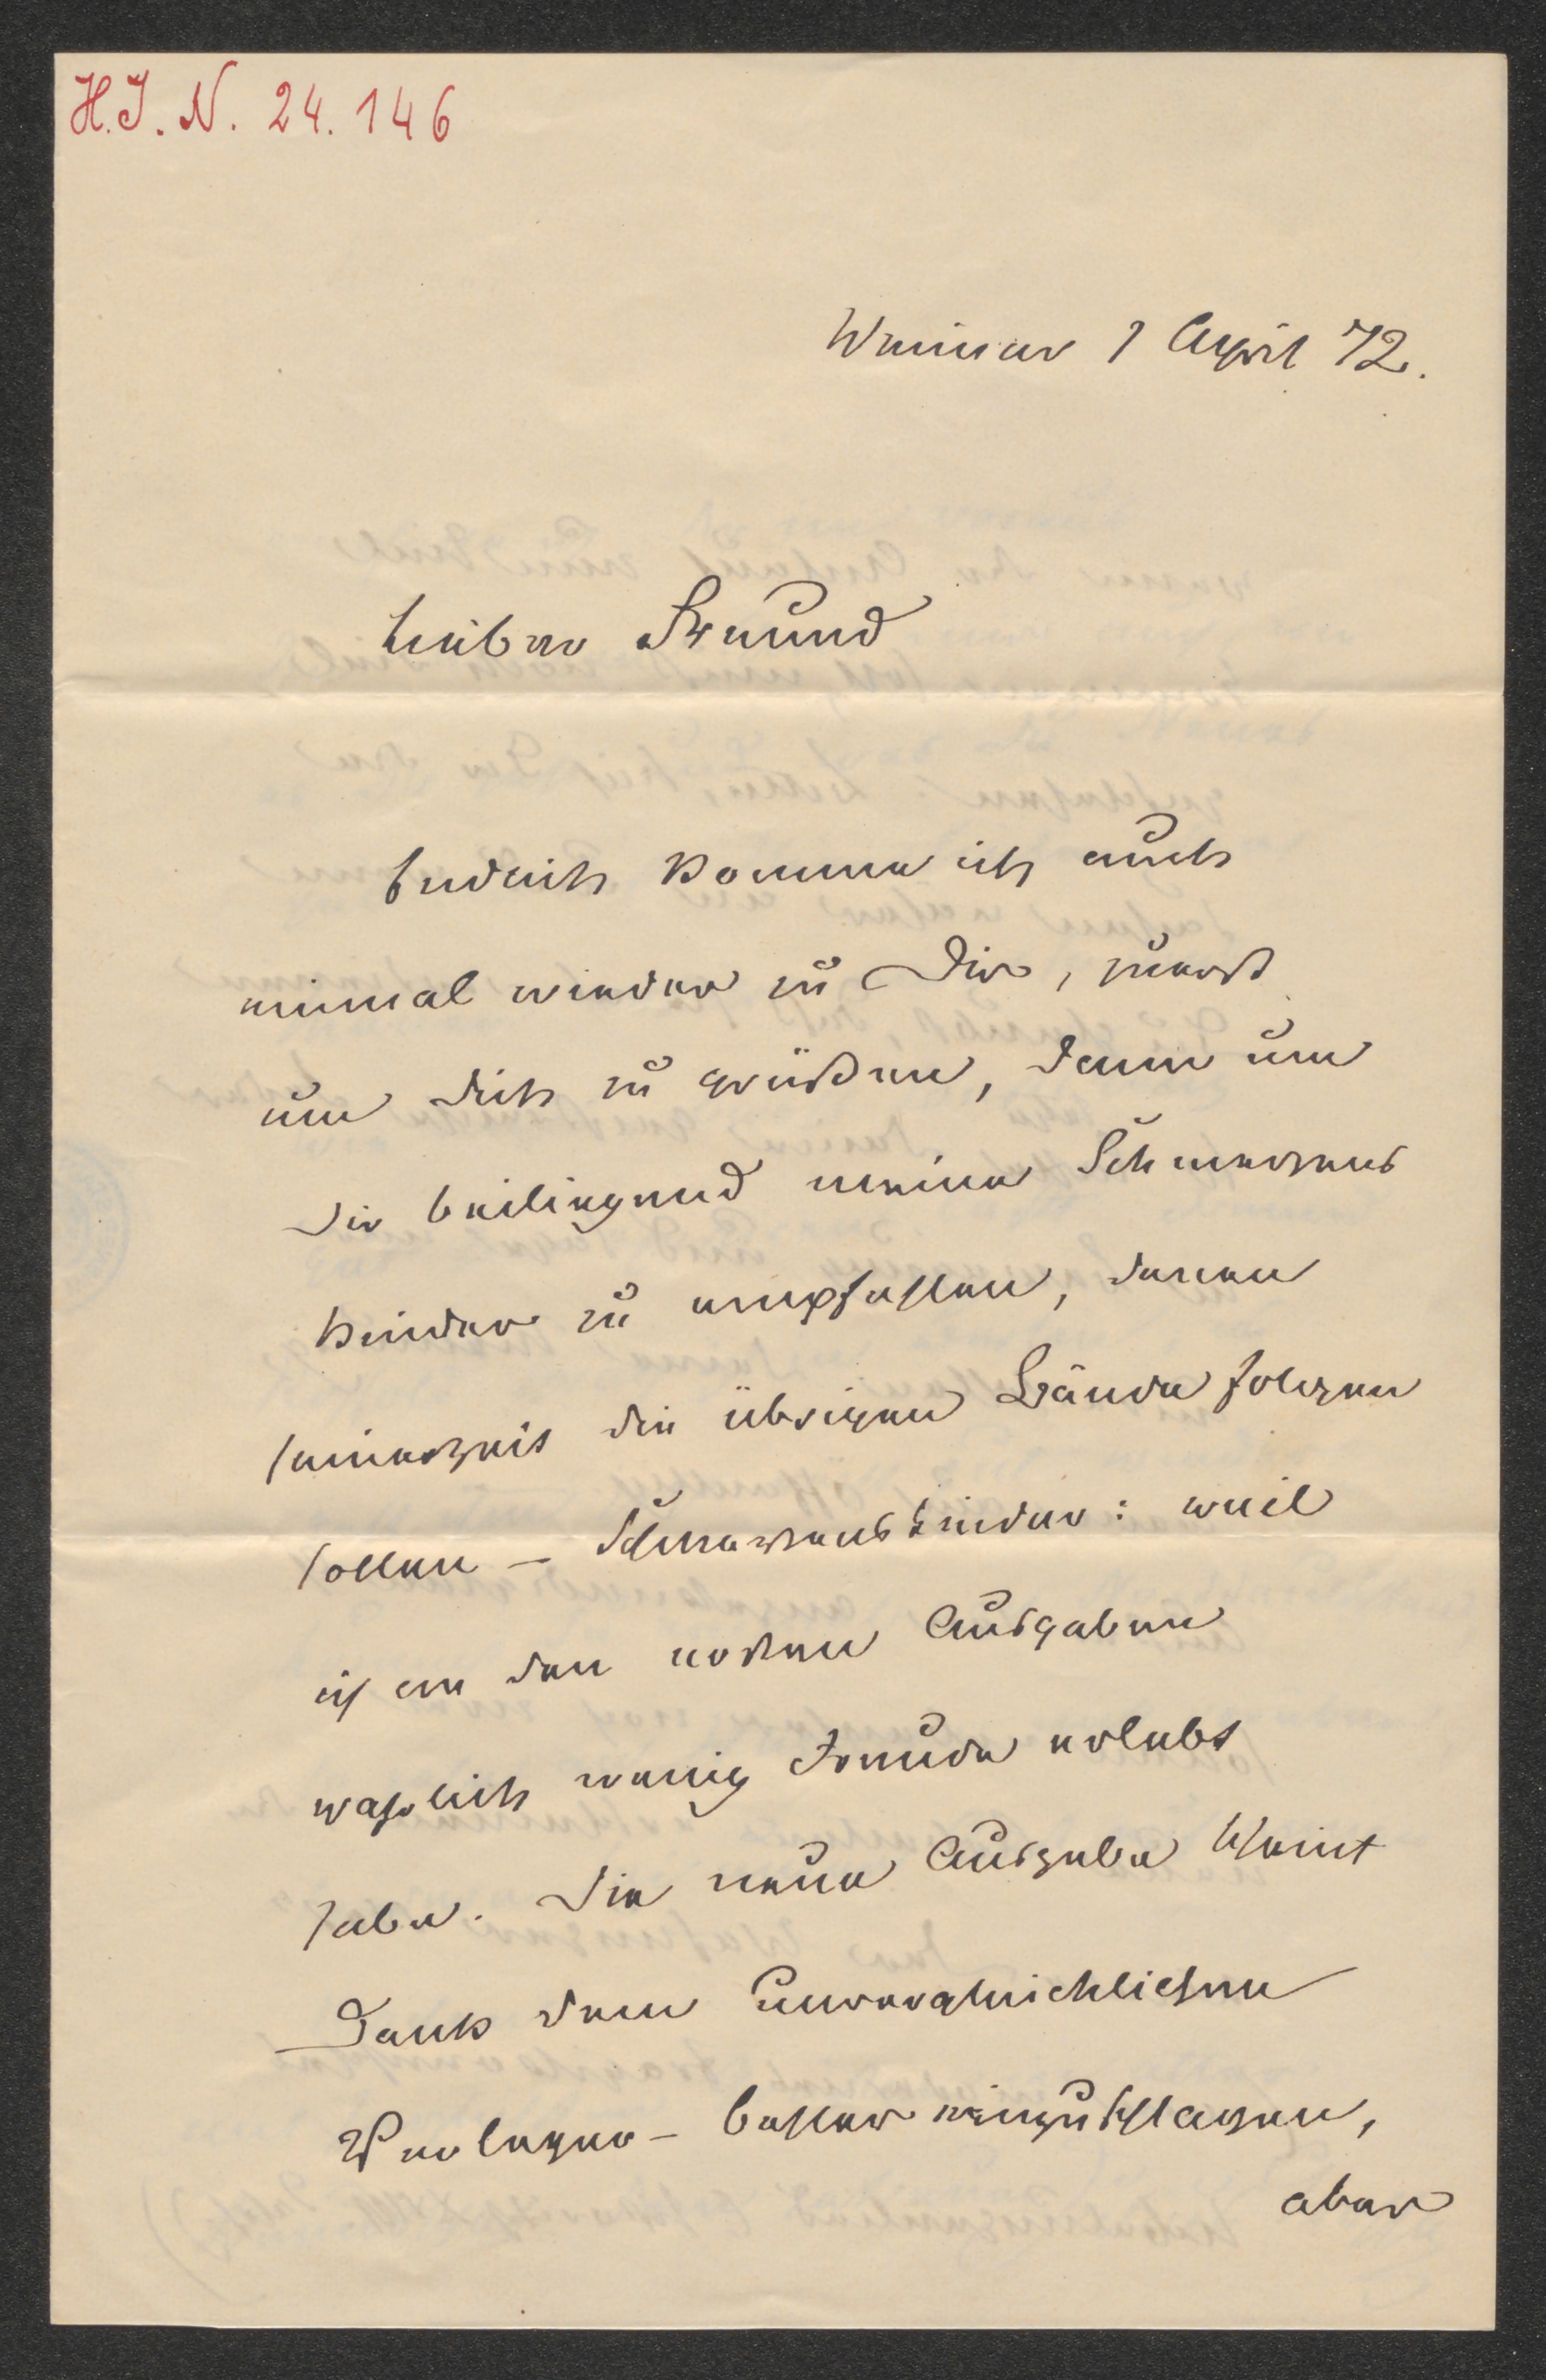 H.J. N. 24.146
Weimar 1 April 72.
Lieber Freund
Endlich komme ich auch
einmal wieder zu Dir, zuerst
um Dich zu grüßen, dann um
Dir beiliegend meine Schmerzens
kinder zu empfehlen, denen
seinerzeit die übrigen Bände folgen
sollen – Schmerzenskinder: weil
ich an den ersten Ausgaben
wahrlich wenig Freude erlebt
habe. Die neue Ausgabe scheint
Dank dem unvergleichlichen
Verleger – besser einzuschlagen,
aber